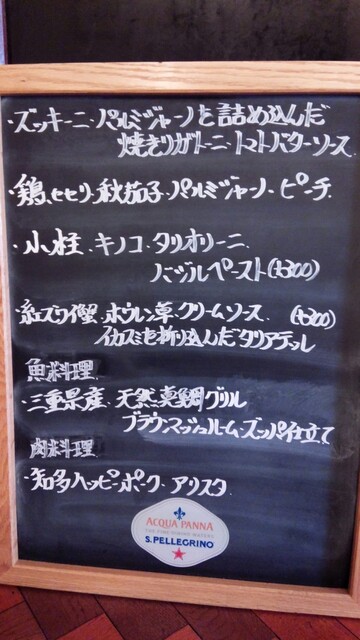 ・ズッキーニ・パルミジャーノを詰め込んだ
焼きリガトーニ・トマトバターソース
・鶏、セセリ・秋茄子・パルミジャーノ・ピーチ
・小柱、キノコ・タリオリーニ
バジルペースト(+300)
・紅ズワイ蟹・ホウレン草・クリームソース (+300)
イカスミを折り込んだタリアテッレ
魚料理
・三重県産・天然真鯛グリル
ブラウンマッシュルーム・ズッパ仕立て
肉料理
・知多ハッピーポーク・アリスタ
ACQUA PANNA
S.PELLEGRINO